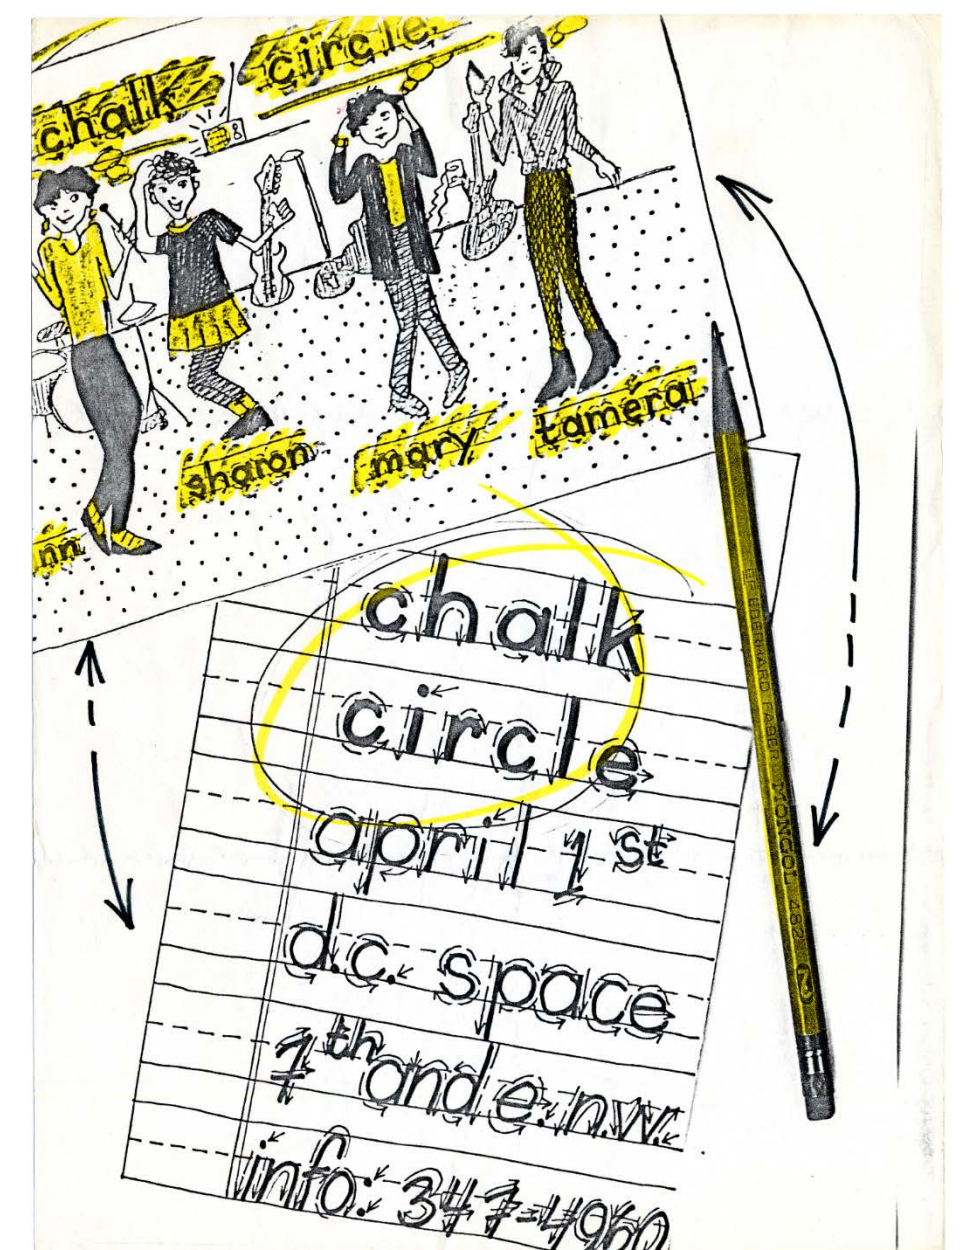 chalk circle
sharon mary tamera
nn
chalk
circle
april 1st
d.c. space
7th and e. n.w.
info: 347-4960
EBERHARD FABER MONGOL 482 2